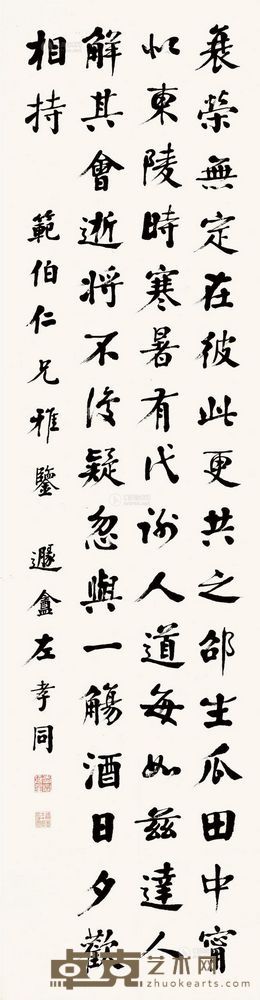 衰榮無定在彼此更共之邵生瓜田中甯
似東陵時寒暑有代謝人道每如茲達人
解其會逝將不復疑忽與一觴酒日夕歡
相持 範伯仁兄雅鑒 遯盦左孝同
卓克艺术网
zhuokearts.com